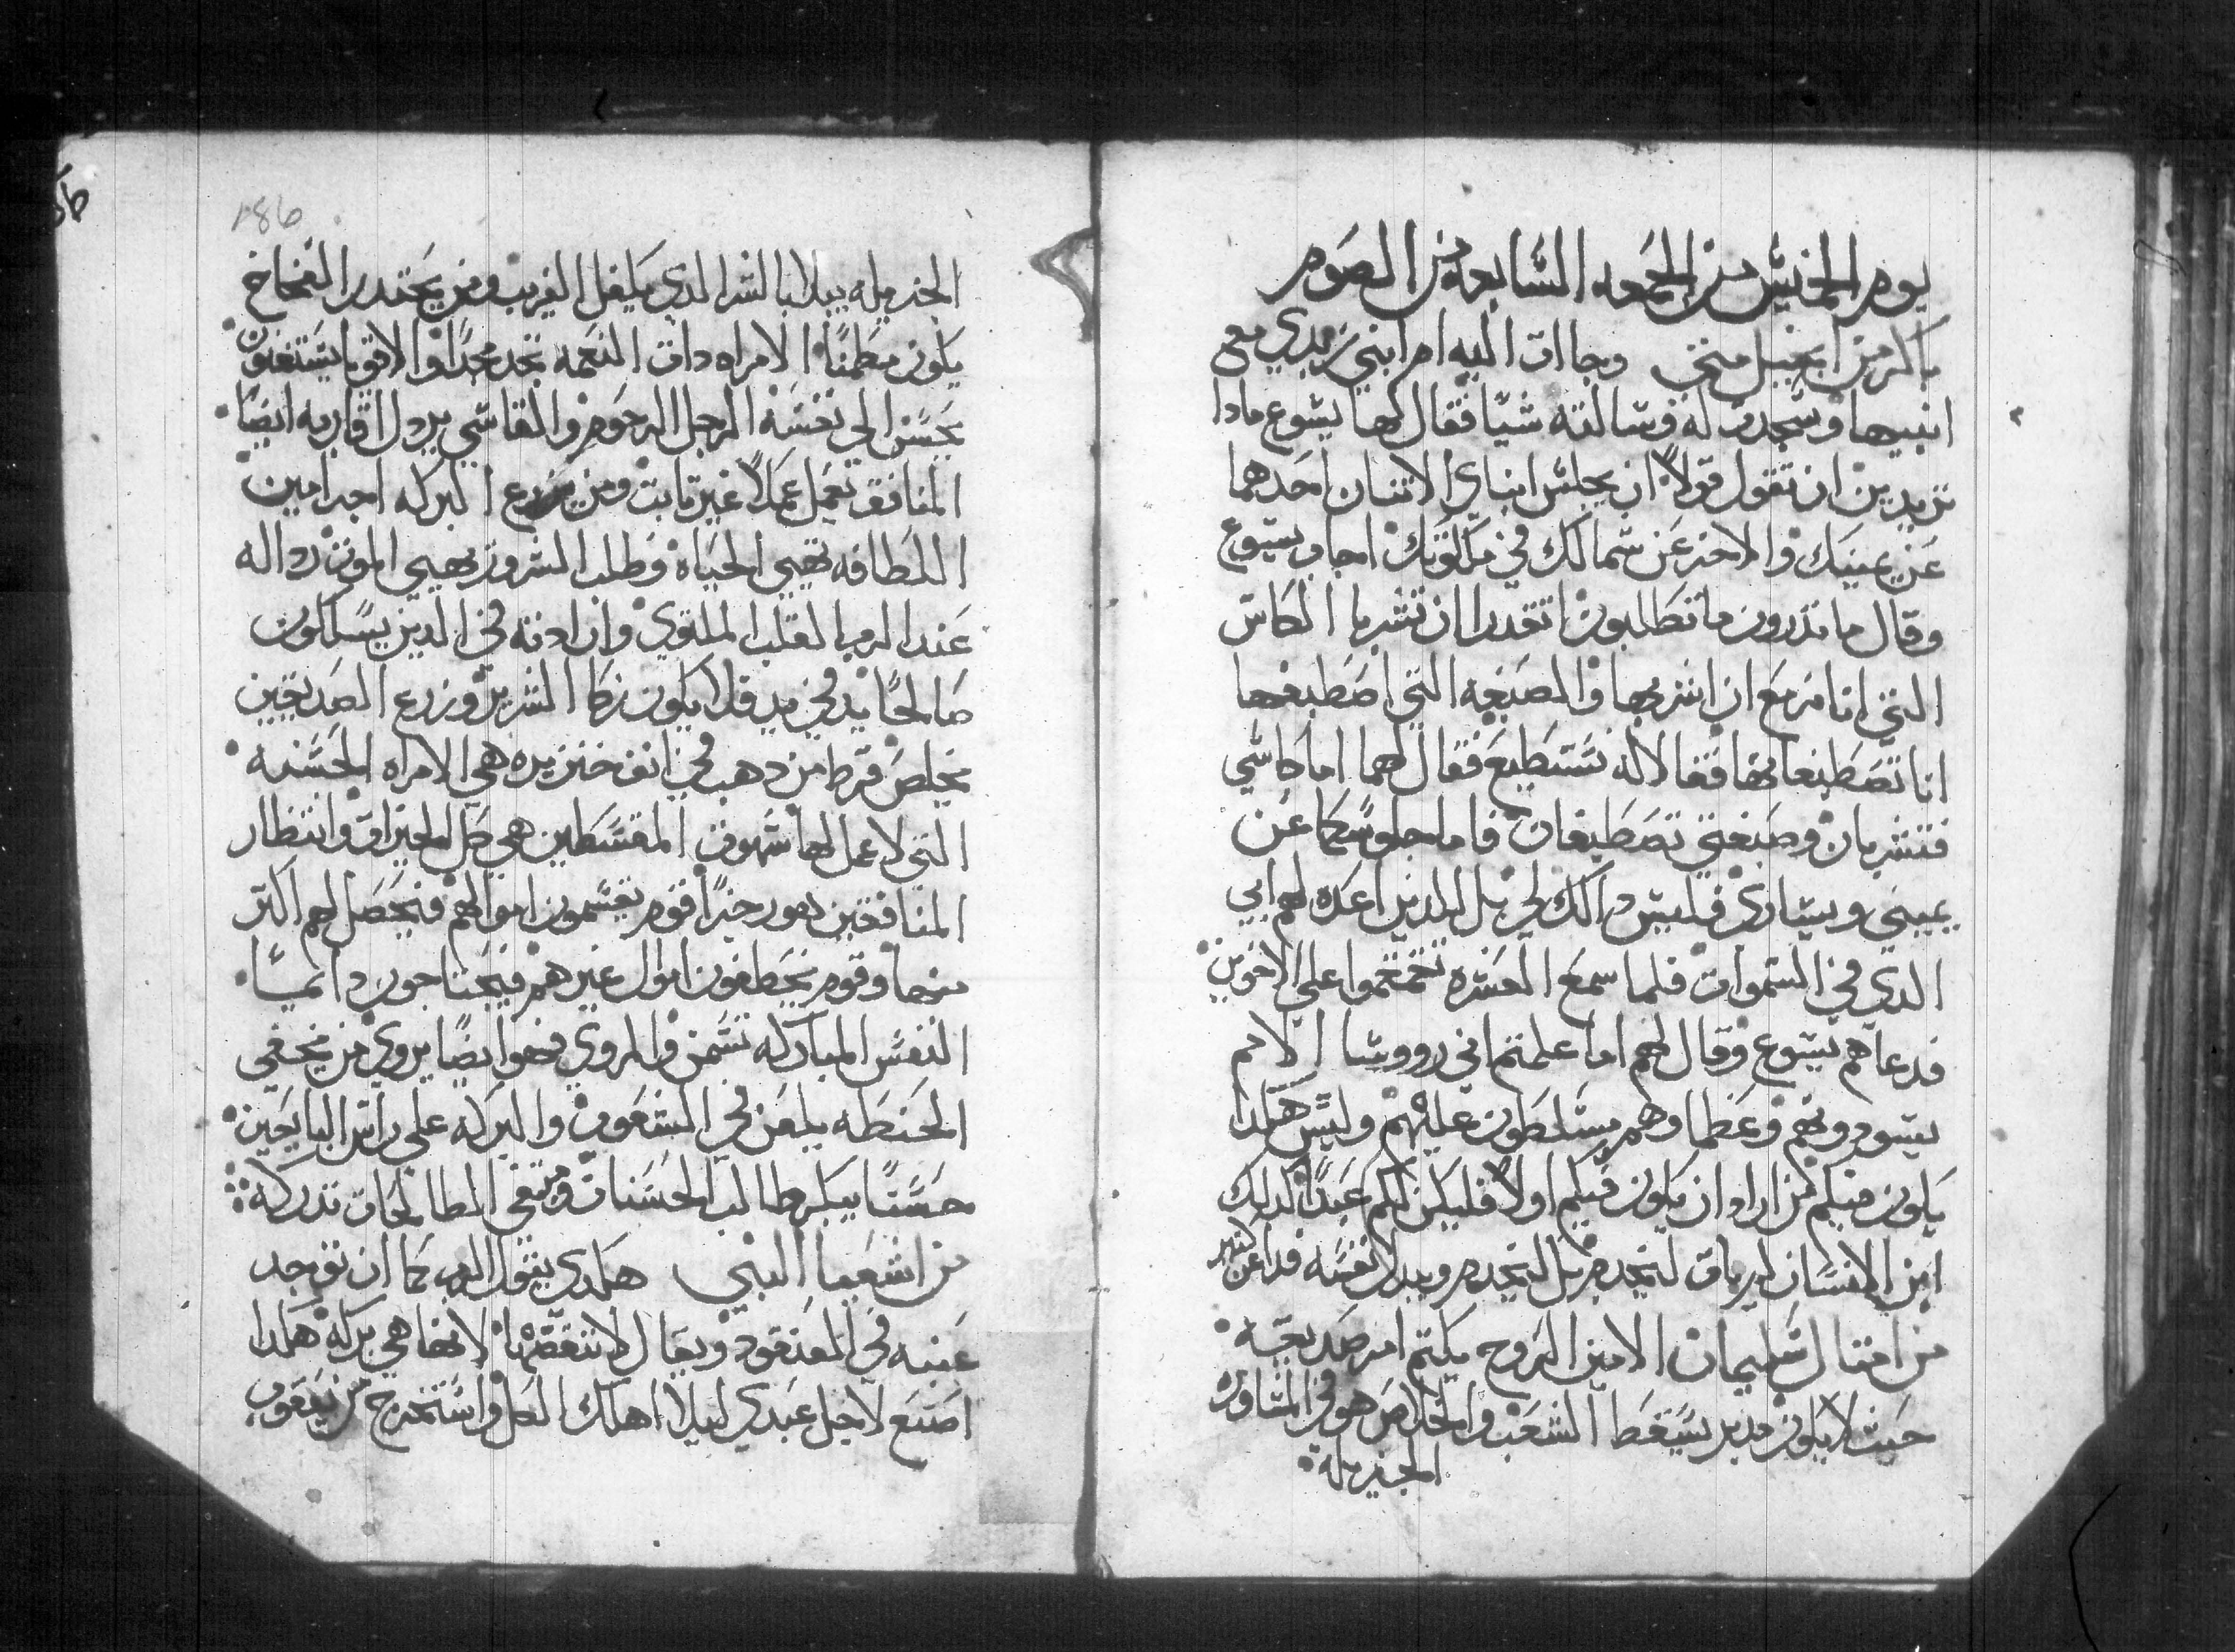 يوم الخميس من الجمعه السابعه من الصوم
باكر من انجيل متى وجاات اليه ام ابني زبدي مع
ابنيها وسجدت له وسالته شيا فقال لها يسوع مادا
تريدين ان تقول قولا ان يجلس ابناي الاتنان احدهما
عن يمينك والاخر عن شمالك في ملكوتك اجاب يسوع
وقال ما تدرون ما تطلبون اتقدرا ان تشربا الكاس
التي انا مزمع ان اشربها والصبغه التي اصطبغها
انا تصطبغا بها فقالا له نستطيع فقال لهما اما كاسي
فتشربان وصبغتي تصطبغان فاما جلوسكما عن
يميني ويساري فليس دالك لي بل للدين اعده لهم ابي
الدي في السموات فلما سمع العشره تقمقموا على الاخوين
فدعاهم يسوع وقال لهم اما علمتم اني رووسا الامم
يسودونهم وعظما وهم يتسلطون عليهم وليس هكدا
يكون فيكم من اراد ان يكون فيكم اولا فليكن لكم عبدا كدلك
ابن الانسان لم يات ليخدم بل ليخدم ويبدل نفسه فدا عن كتير
من امتال سليمان الامين الروح يكتم امر صديقه
حيت لا يكون مدبر يسقط الشعب والخلاص هو في المشاوره
الجزيله
186
الجزيله يبلا بالشر الدي يكفل الغريب ومن يحتدر الفخاخ
يكون مطمنا الامراه دات النعمه تجد مجدا والاقويا يستغنون
يحسن الى نفسه الرجل الرحوم والقاسي يردل اقاربه ايضا
المنافق يعمل عملا غير تابت ومن يزرع البركه اجر امين
اللطافه تهيي الحياه وطلب الشرور يهيي الموت رداله
عند الرب القلب الملتوي وارادته في الدين يسلكون
صالحا يد في يد فلا يكون زكا الشرير وزرع الصديقين
يخلص قرط من دهب في انف خنزيره هي الامراه الحسنه
التي لا عمل لها شهوت المقسطين هي كل الخيرات وانتظار
المنافقين هو رجزا قوم يقسمون اموالهم فيحصل لهم اكتر
منها وقوم يخطفون اموال غيرهم فيحتاجون دايما
النفس المباركه تسمن والمروي فهو ايضا يروي من يخفي
الحنطه يلعن في الشعوب والبركه على راس البايعين
حسنا يبكر طالب الحسنات ومبتغي الطالحات تدركه
من اشعيا النبي هكدي يقول الرب كما ان توجد
عنبه في العنقود ويقال لا تنقضها لانها هي بركه هكدا
اصنع لاجل عبدي ليلا اهلك الكل واستخرج من يعقوب